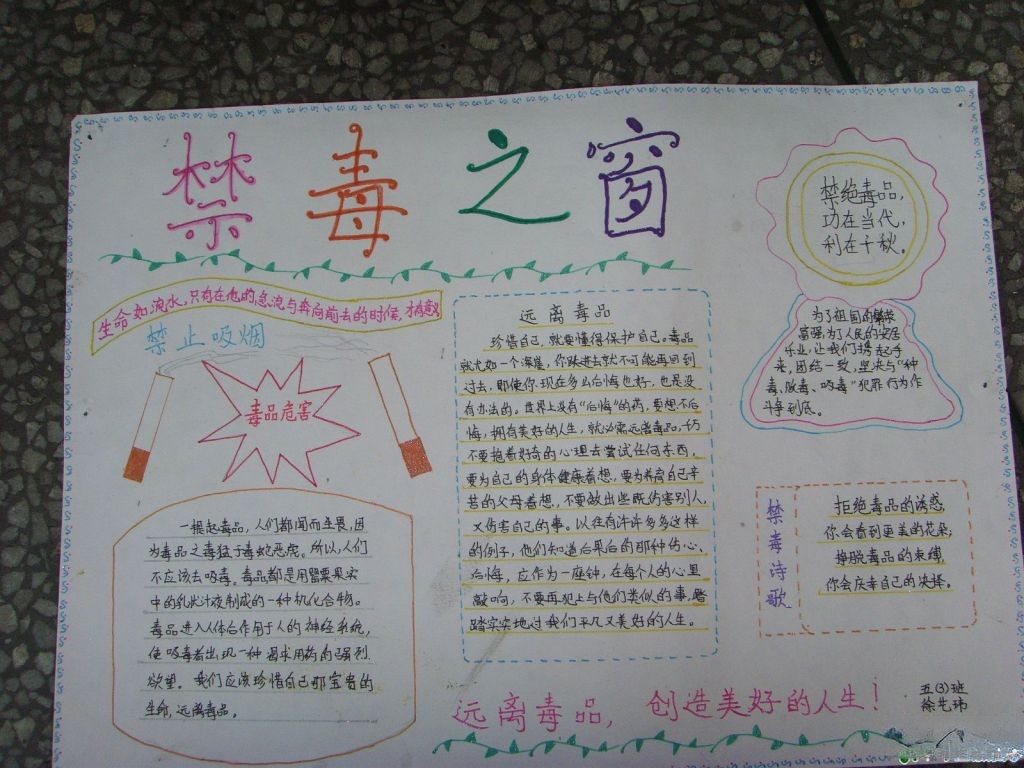 禁毒之窗
禁绝毒品，
功在当代，
利在千秋。
生命如流水，只有在他的急流与奔向前去的时候，才有意义
禁止吸烟
毒品危害
一提起毒品，人们都闻而生畏，因
为毒品之毒猛于毒蛇恶虎。所以，人们
不应该去吸毒。毒品都是用罂粟果实
中的乳米汁液制成的一种机化合物。
毒品进入人体后作用于人的神经系统，
使吸毒者出现一种渴求用药的强烈
欲望。我们应该珍惜自己那宝贵的
生命，远离毒品。
远离毒品
珍惜自己，就要懂得保护自己。毒品
就犹如一个深崖，你跌进去就不可能再回到
过去，即使你现在多么后悔也好，也是没
有办法的。世界上没有“后悔”的药，要想不后
悔，拥有美好的人生，就必需远离毒品，千万
不要抱着好奇的心理去尝试任何东西，
要为自己的身体健康着想，要为养育自己辛
苦的父母着想，不要做出些既伤害别人，
又伤害自己的事。以往有许许多多这样
的例子，他们知道后果后的那种伤心、
后悔，应作为一座钟，在每个人的心里
敲响，不要再犯上与他们类似的事，踏
踏实实地过我们平凡又美好的人生。
为了祖国的繁荣
富强，为了人民的安居
乐业，让我们携起手
来，团结一致，坚决与“种
毒、贩毒、吸毒”犯罪行为作
斗争到底。
禁毒诗歌
拒绝毒品的诱惑，
你会看到更美的花朵；
挣脱毒品的束缚，
你会庆幸自己的决择。
远离毒品，创造美好的人生！
五(3)班